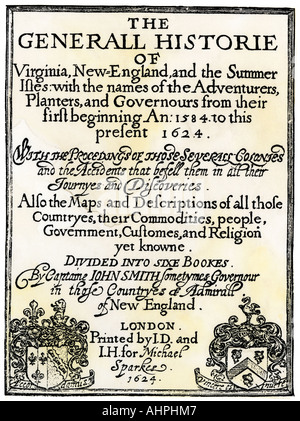 THE
GENERALL HISTORIE
OF
Virginia, New-England, and the Summer
Isles: with the names of the Adventurers,
Planters, and Governours from their
first beginning An: 1584. to this
present 1624.
WITH THE PROCEDINGS OF THOSE SEVERALL COLONIES
and the Accidents that befell them in all their
Journyes and Discoveries.
Also the Maps and Descriptions of all those
Countryes, their Commodities, people,
Government, Customes, and Religion
yet knowne.
DIVIDED INTO SIXE BOOKES.
By Captaine IOHN SMITH sometymes Governour
in those Countryes & Admirall
of New England.
LONDON
Printed by I.D. and
I.H. for Michael
Sparkes.
1624.
alamy stock photo
AHPHM7
www.alamy.com